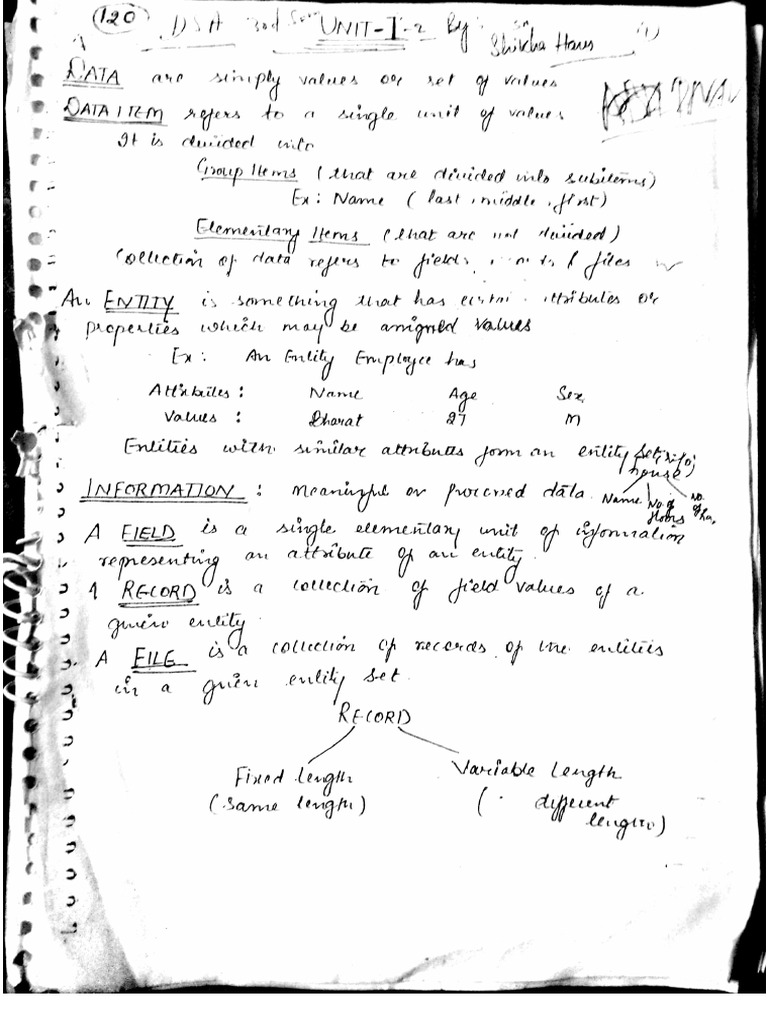 120 DSA 3rd Sem UNIT-I-2 By: Shikha (1)
DATA are simply values or set of values
DATA ITEM refers to a single unit of values
It is divided into
Group Items (that are divided into subitems)
Ex: Name (last, middle, first)
Elementary Items (that are not divided)
Collection of data refers to fields, files
An ENTITY is something that has attributes or
properties which may be assigned values
Ex: An Entity Employee has
Attributes: Name Age Sex
Values: Bharat 27 M
Entities with similar attributes form an entity set
house)
INFORMATION: Meaningful or processed data Name No of floors No.
A FIELD is a single elementary unit of information
representing an attribute of an entity.
A RECORD is a collection of field values of a
given entity.
A FILE is a collection of records of the entities
in a given entity set.
RECORD
Fixed length Variable length
(same length) ( different
length)